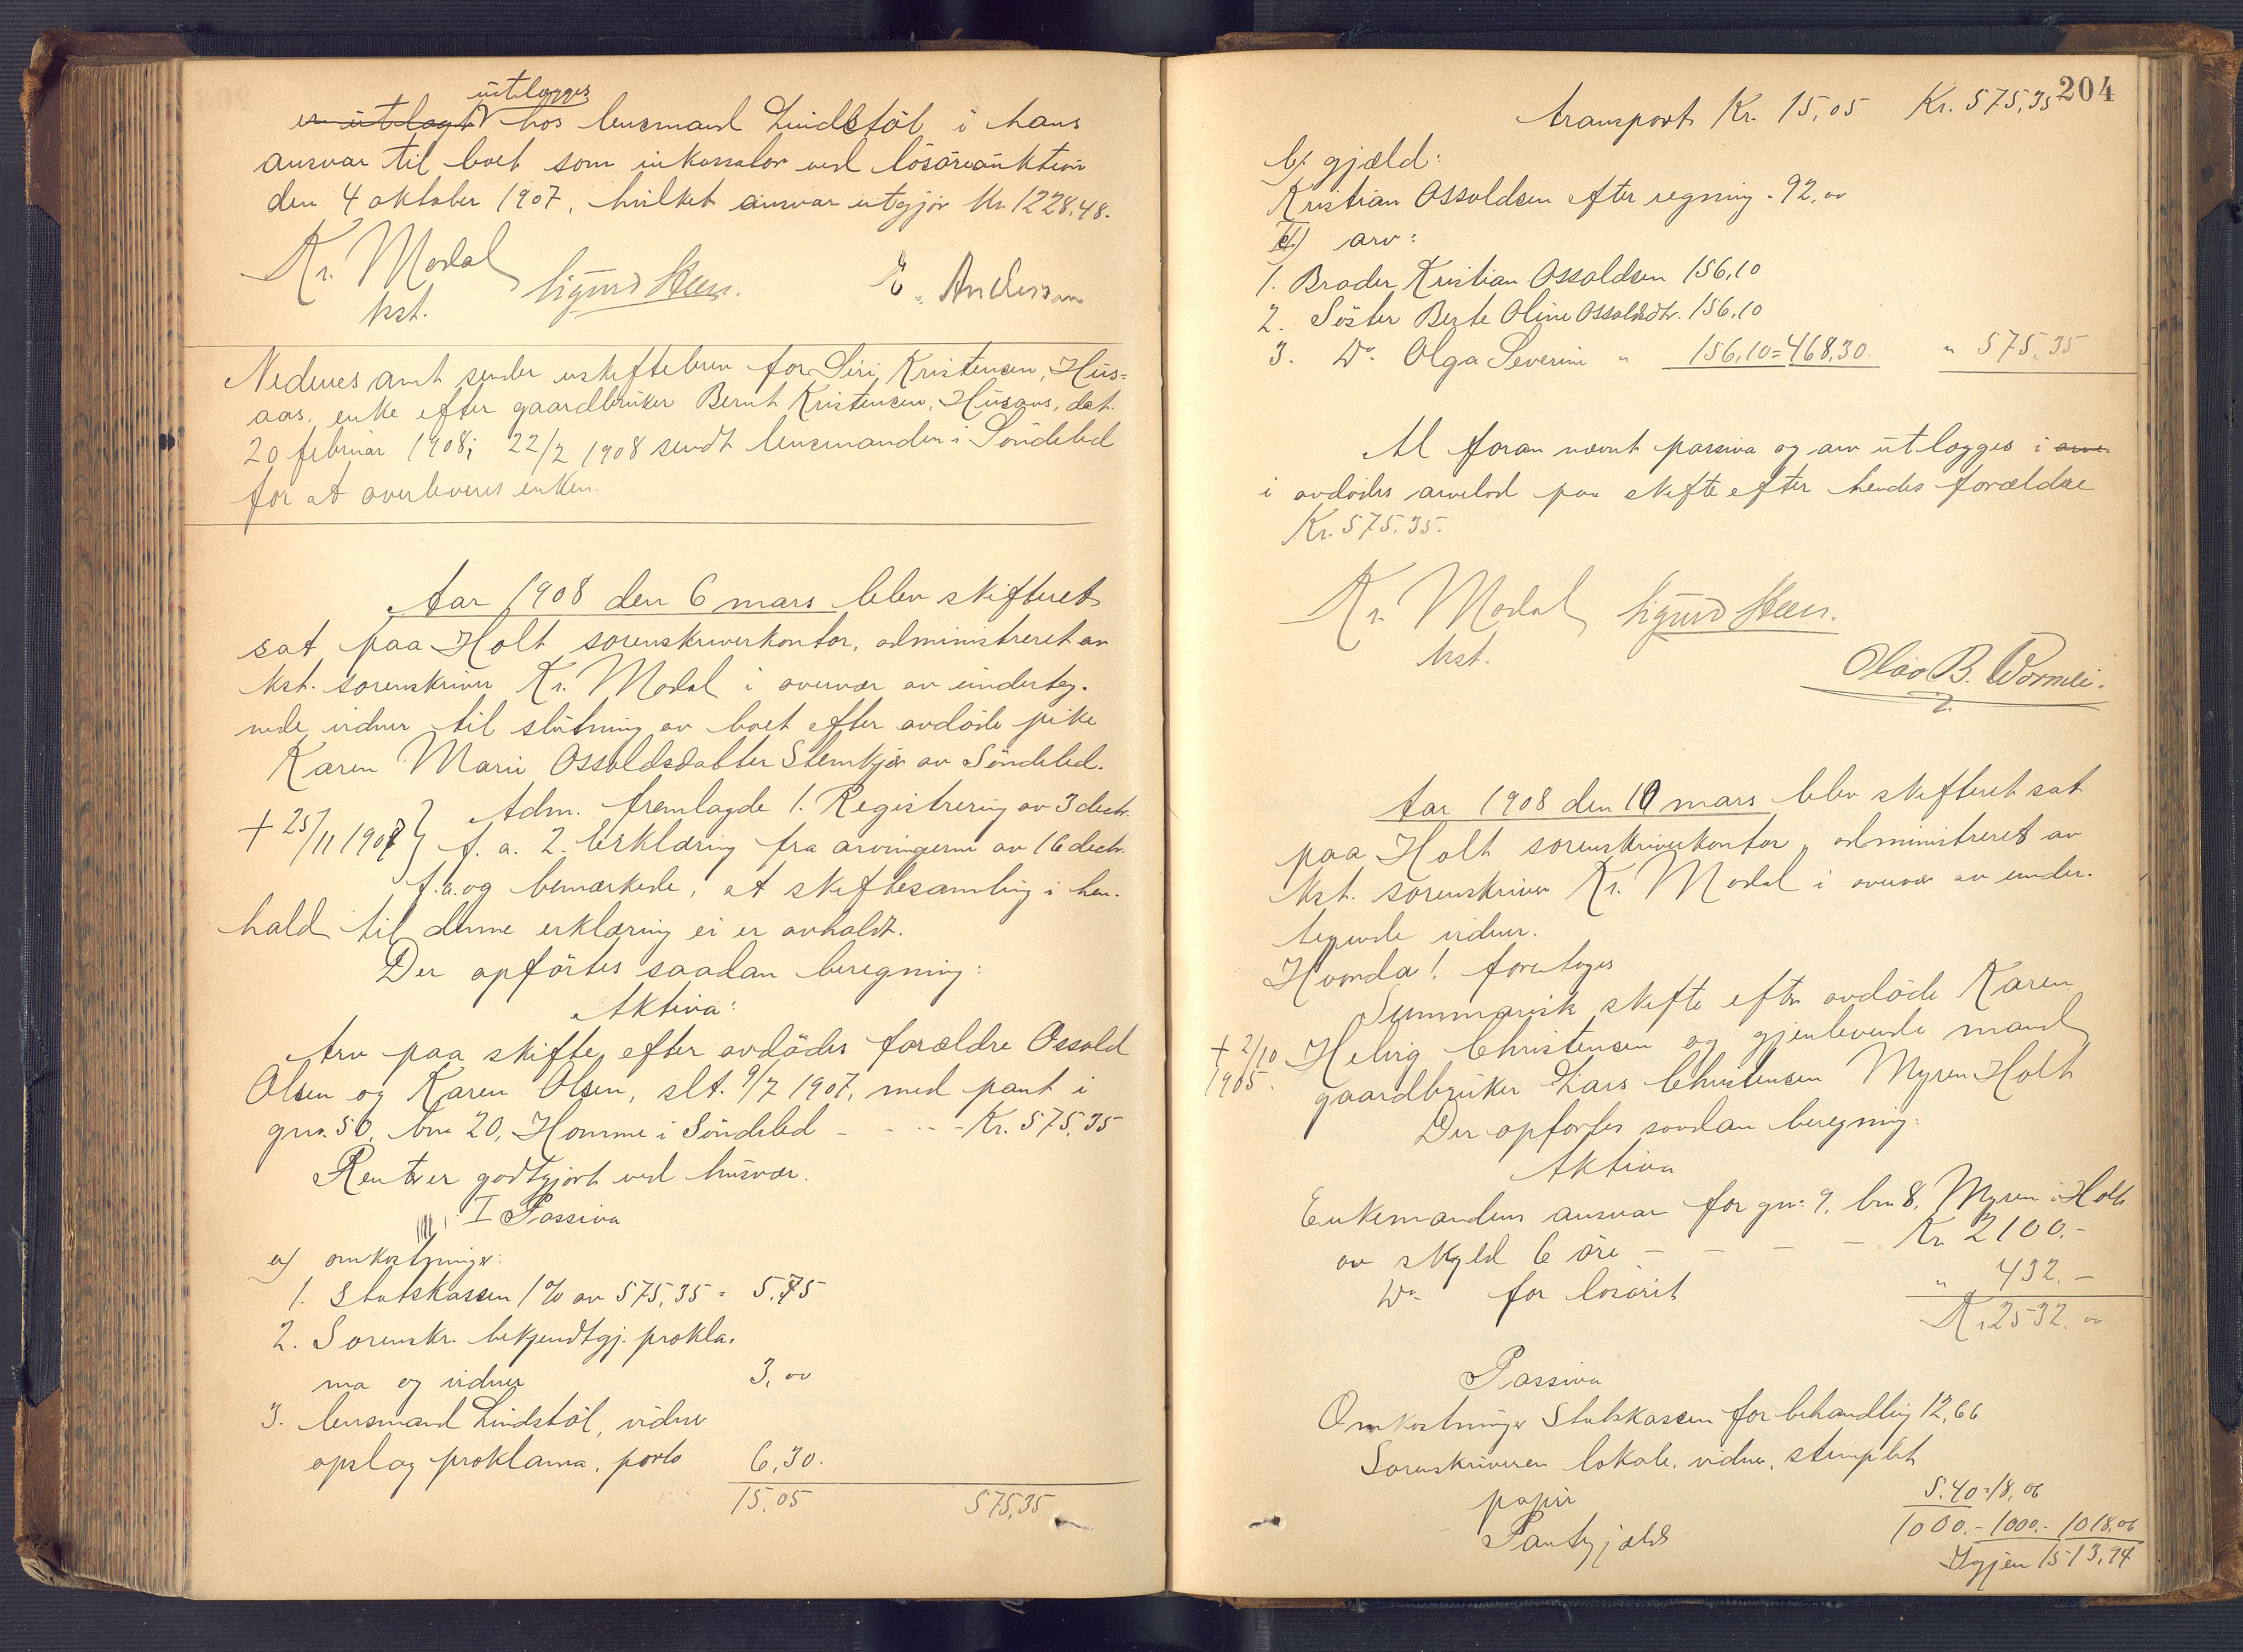 utlægges
er utlagt hos lensmand Lindstöl i hans
ansvar til boet som inkassator ved lösöreauktion
den 4 oktober 1907, hvilket ansvar utgjör Kr 1228,48.
Kr. Modal Sigurd Steen. E. Andersen
kst.
Nedenes amt sender uskiftebrev for Siri Kristensen, Hus-
aas, enke efter gaardbruker Bernt Kristensen, Husaas, dat.
20 februar 1908; 22/2 1908 sendt lensmanden i Söndeled
for at overleveres enken.
Aar 1908 den 6 mars blev skifteret
sat paa Holt sorenskriverkontor, administreret av
kst. sorenskriver Kr. Modal i overvær av underteg-
nede vidner til slutning av boet efter avdöde pike
Karen Marie Ossoldsdatter Stemkjær av Söndeled.
Adm. fremlagde 1. Registrering av 3 decbr.
+ 25/11 1907 } f. a. 2. Erklæring fra arvingerne av 16 decbr.
f. a. og bemærkede, at skiftesamling i hen-
hold til denne erklæring ei er avholdt.
Der opförtes saadan beregning:
Aktiva:
Arv paa skifte efter avdödes forældre Ossold
Olsen og Karen Olsen, slt. 9/7 1907, med pant i
gno. 50, bno 20, Homme i Söndeled - - - - Kr. 575,35
Renter godtgjort ved husvær.
I Passiva
a) omkostninger:
1. Statskassen 1% av 575,35 = 5,75
2. Sorenskr. bekjendtgj. prokla-
ma og vidner 3,00
3. lensmand Lindstöl, vidner
opslag proklama, porto 6,30.
15,05 575,35
204
transport Kr. 15,05 Kr. 575,35
b) gjæld:
Kristian Ossoldsen efter regning - 92,00
II) arv:
1. Broder Kristian Ossoldsen 156,10
2. Söster Berte Oline Ossoldsdtr. 156,10
3. Do. Olga Severine " 156,10 = 468,30. " 575,35
Al foran nævnt passiva og arv utlægges i arve-
i avdödes arvelod paa skifte efter hendes forældre
Kr. 575,35.
Kr. Modal Sigurd Steen.
kst.
Olav B. Wormli.
Aar 1908 den 10 mars blev skifteret sat
paa Holt sorenskriverkontor, administreret av
kst. sorenskriver Kr. Modal i overvær av under-
tegnede vidner.
Hvorda! foretoges
Summarisk skifte efter avdöde Karen
+ 2/10 Helvig Christensen og gjenlevende mand
1905. gaardbruker Lars Christensen Myren Holt
Der opförtes saadan beregning:
Aktiva
Enkemandens ansvar for gno 9, bno 8, Myren i Holt
av skyld 6 öre - - - - Kr 2100.-
Do. for lösöret " 432.-
Kr. 2532.00
Passiva
Omkostninger Statskassen for behandling 12,66
Sorenskriveren lokale, vidner, stemplet
papir 5.40 = 18,06
Pantegjæld 1000.- 1000.- 1018,06
Igjen 1513,94